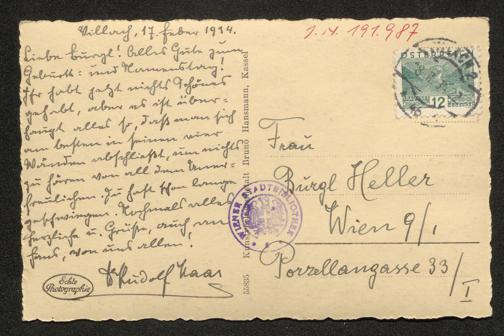 Villach, 17. Feber 1934.
Liebe Burgl! Alles Gute zum
Geburts= und Namenstag!
Ihr habt jetzt nichts Schönes
gehabt, aber es ist über=
haupt alles so, daß man sich
am besten in seinen vier
Wänden abschließt, um nichts
zu hören von all dem Uner=
freulichen. Du hast schon lange
geschwiegen. Nochmals alles
herzliche u. Grüße, auch an
Hans, von uns allen.
Rudolf Haas
Echte
Photographie
I.N. 191.987
50835 Kunstanstalt Bruno Hansmann, Kassel
WIENER STADTBIBLIOTHEK
ÖSTERREICH
12
VILLACH 2
Frau
Burgl Heller
Wien 9/1
Porzellangasse 33/I